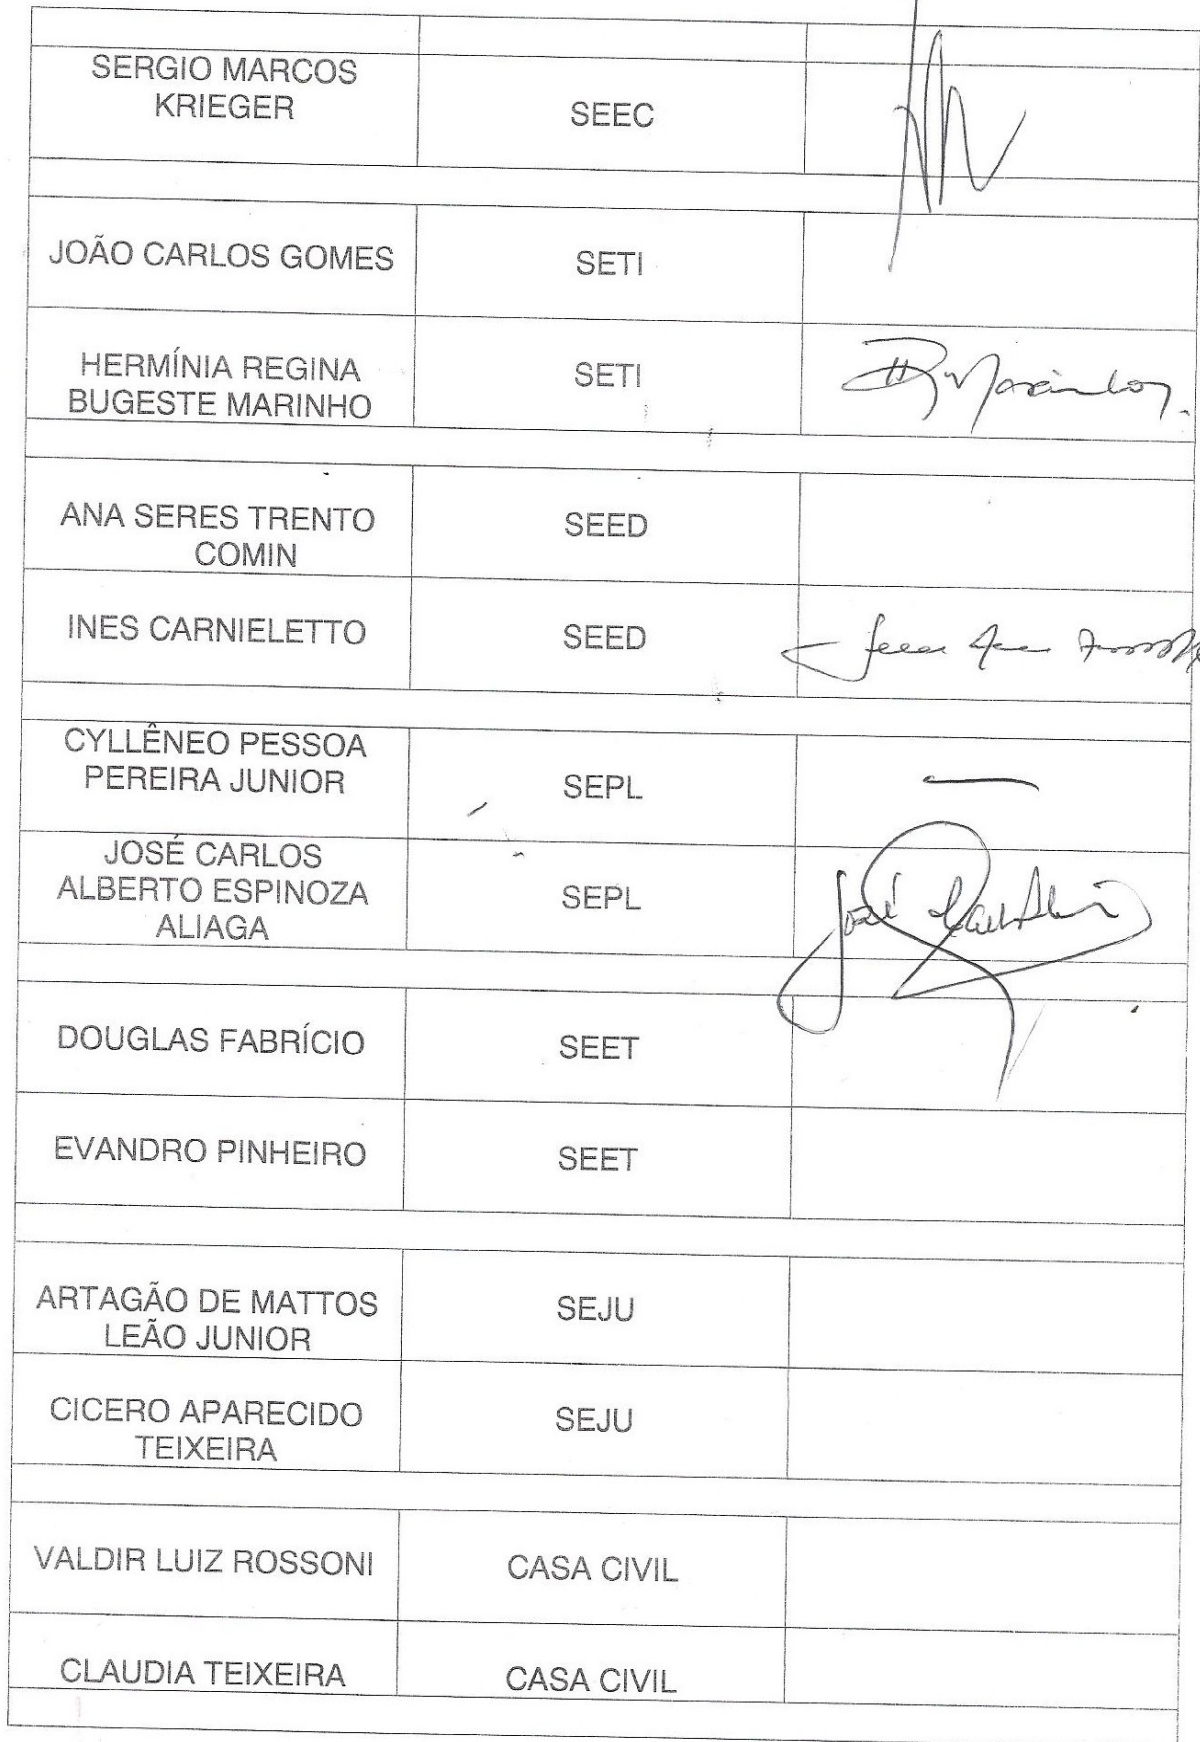 SERGIO MARCOS
KRIEGER
SEEC
JOÃO CARLOS GOMES
SETI
HERMÍNIA REGINA
BUGESTE MARINHO
SETI
Marinho
ANA SERES TRENTO
COMIN
SEED
INES CARNIELETTO
SEED
CYLLÊNEO PESSOA
PEREIRA JUNIOR
SEPL
JOSÉ CARLOS
ALBERTO ESPINOZA
ALIAGA
SEPL
José
DOUGLAS FABRÍCIO
SEET
EVANDRO PINHEIRO
SEET
ARTAGÃO DE MATTOS
LEÃO JUNIOR
SEJU
CICERO APARECIDO
TEIXEIRA
SEJU
VALDIR LUIZ ROSSONI
CASA CIVIL
CLAUDIA TEIXEIRA
CASA CIVIL